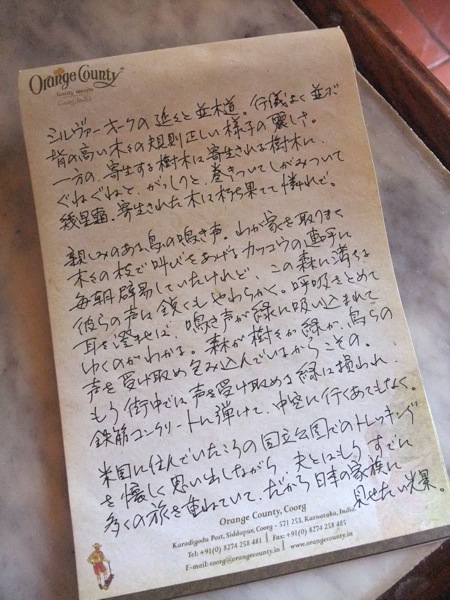 Orange County
Coorg, India
シルヴァーオークの延々と並木道。行儀よく並ぶ
背の高い木々の規則正しい様子の麗しさ。
一方の、寄生する樹木に寄生される樹木に、
ぐねぐねと、がっしりと、巻きついてしがみついて
幾星霜、寄生された木は朽ち果てて憐れで。
親しみのある鳥の鳴き声。わが家を取りまく
木々の枝で叫びをあげるカッコウの連呼に
毎朝辟易していたけれど、この森に満ちる
彼らの声に鋭くもやわらかく。呼吸をとめて
耳を澄ませば、鳴き声が緑に吸い込まれて
ゆくのがわかる。森が樹々が緑が、鳥らの
声を受け取め包み込んでいるからこその。
もう街中では声を受け取める緑は損われ、
鉄筋コンクリートに弾けて、中空に行くあてもなく。
米国に住んでいたころの国立公園でのトレッキング
を懐しく思い出しながら、夫とはもうすでに
多くの旅を重ねていて、だから日本の家族に
見せたい光景。
Orange County, Coorg
Karadigodu Post, Siddapur, Coorg - 571 253, Karnataka, India.
Tel: +91 (0) 8274 258 481 | Fax: +91 (0) 8274 258 485
E-mail: coorg@orangecounty.in | www.orangecounty.in